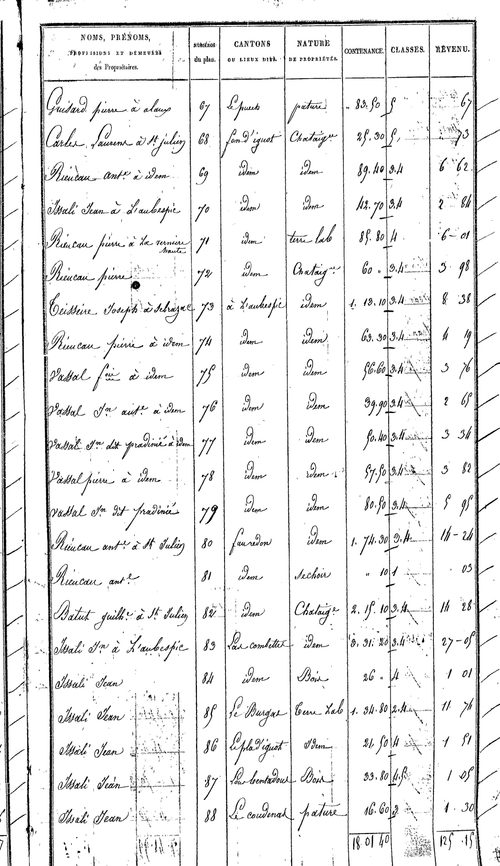 NOMS, PRÉNOMS, PROFESSIONS ET DEMEURES des Propriétaires. NUMÉROS du plan. CANTONS OU LIEUX DITS. NATURE DE PROPRIÉTÉS. CONTENANCE. CLASSES. REVENU.
Guitard pierre à alaux 67 Le puech pature " 83.50 5 . 67
Carles Laurens à St julien 68 fon d'iguot Chataige 25.30 5 . 73
Riencau ante à idem 69 idem idem 89.40 3.4 6 62
Issali Jean à L'aubespic 70 idem idem 42.70 3.4 2 84
Riencau pierre à La verniere haute 71 idem terre lab 85.80 4 6-01
Riencau pierre 72 idem Chataige 60 " 3.4 3 98
Teisseire Joseph à 73 à L'aubespic idem 1. 13.10 3.4 8 38
Riencau pierre à idem 74 idem idem 63.30 3.4 4 19
Vassal à idem 75 idem idem 56.60 3.4 3 76
Vassal Jn ante à idem 76 idem idem 39.90 3.4 2 65
Vassal Jn dit pradinié à idem 77 idem idem 50.40 3.4 3 34
Vassal pierre à idem 78 idem idem 57.50 3.4 3 82
Vassal Jn dit pradinié 79 idem idem 80.50 3.4 5 95
Riencau ante à St Julien 80 fauredon idem 1. 74.30 3.4 14-24
Riencau ante 81 idem sechoir " 10 1 . 03
Batut guilhe à St Julien 82 idem Chataige 2. 15.10 3.4 14 28
Issali Jn à L'aubespic 83 Las combettes idem 3. 31.20 3.4 27-05
Issali Jean 84 idem Bois 26 " 4 1 01
Issali Jean 85 Le Burgas Terre Lab 1. 34.80 2.4 11 74
Issali Jean 86 Le pla d'iguot Idem 21.50 4 1 51
Issali Jean 87 Bois 33.80 4.5 1 05
Issali Jean 88 Le coudenas pature 16.60 3 1.30
18 01 40 125 15